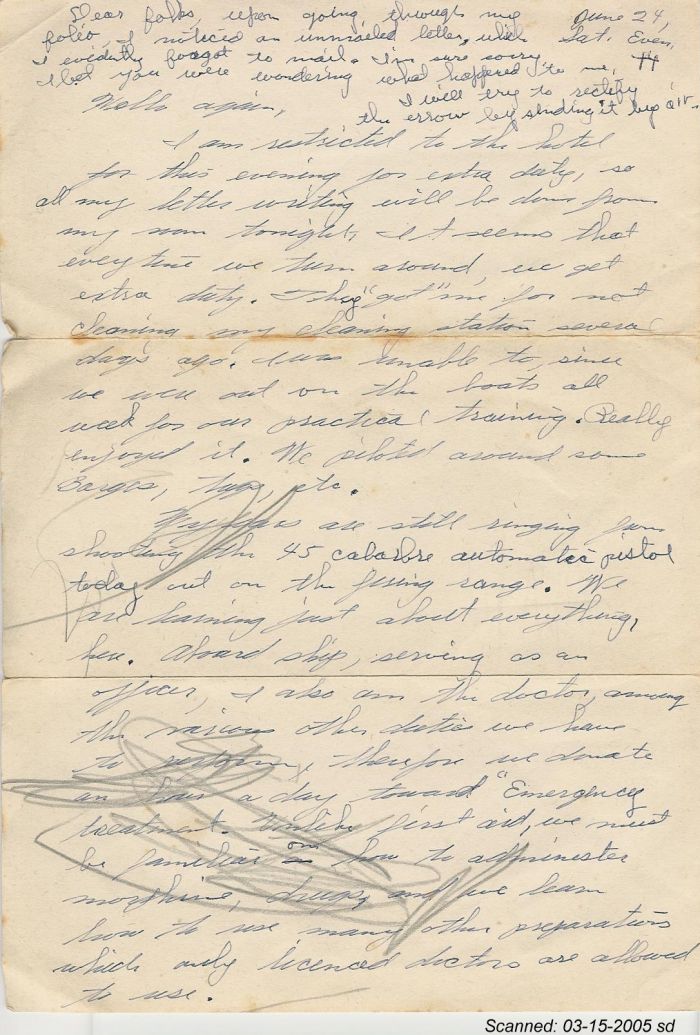 Dear folks, upon going through my
folio, I noticed an unmailed letter, which
I evidently forgot to mail. I'm sure sorry.
I bet you were wondering what happened to me,
I will try to rectify
the error by sending it by air.
June 24,
Sat. Even.
44
Hello again,
I am restricted to the hotel
for this evening for extra duty, so
all my letter writing will be done from
my room tonight. It seems that
everytime we turn around, we get
extra duty. They "got" me for not
cleaning my cleaning station several
days ago. I was unable to, since
we were out on the boats all
week for our practical training. Really
enjoyed it. We piloted around some
barges, tugs, etc.
My ears are still ringing from
shooting the 45 calarbre automatic pistol
today out on the firing range. We
are learning just about everything,
here. Aboard ship, serving as an
officer, I also am the doctor, among
the various other duties we have
to perform, therefore we donate
an hour a day toward "Emergency
treatment. Unlike first aid, we must
be familiar on how to administer
morphine, drugs, and we learn
how to use many other preparations
which only licenced doctors are allowed
to use.
Scanned: 03-15-2005 sd